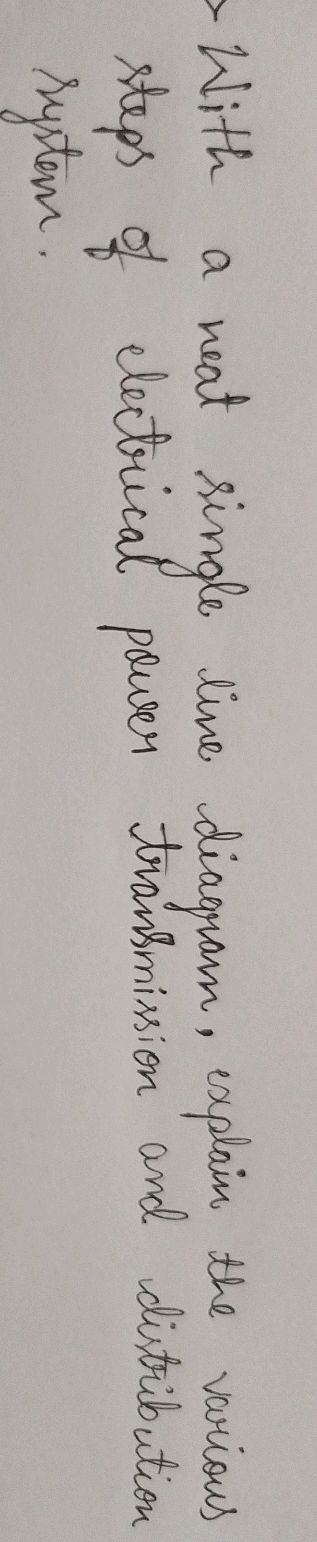 > With a neat single line diagram, explain the various
steps of electrical power transmission and distribution
system.